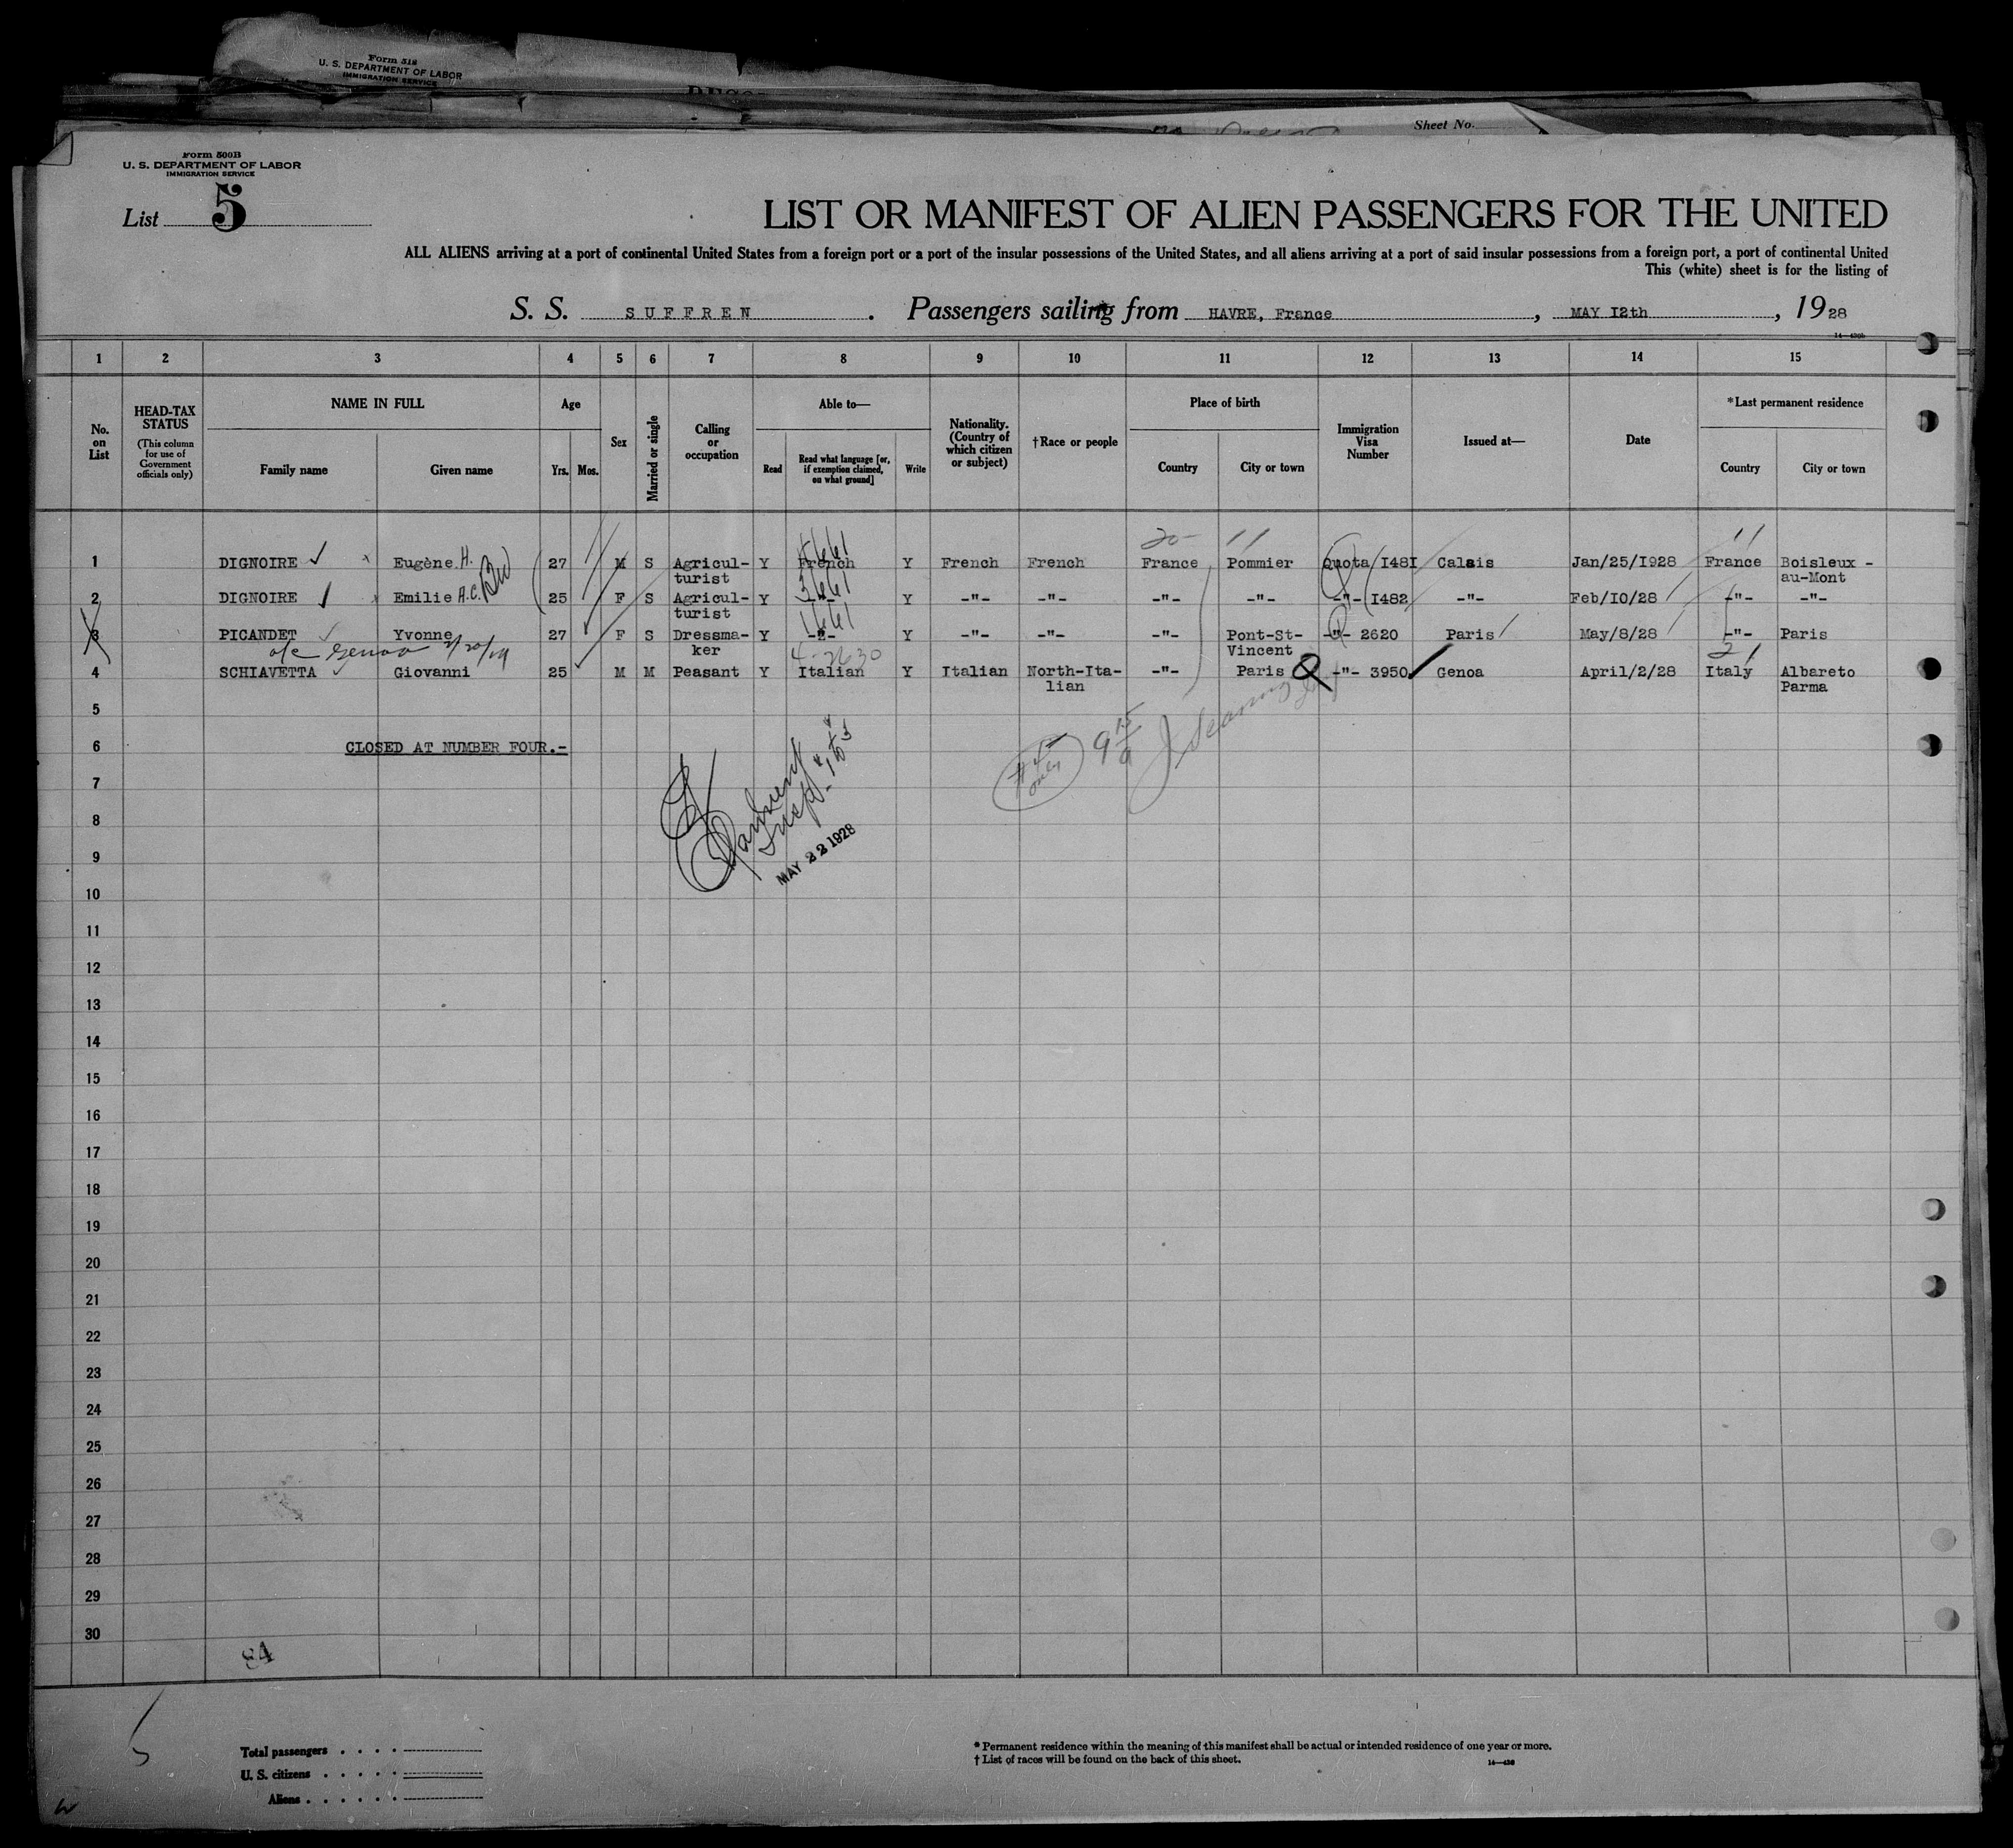 Form 518
U. S. DEPARTMENT OF LABOR
IMMIGRATION SERVICE
Sheet No.
Form 500B
U. S. DEPARTMENT OF LABOR
IMMIGRATION SERVICE
List 5
LIST OR MANIFEST OF ALIEN PASSENGERS FOR THE UNITED
ALL ALIENS arriving at a port of continental United States from a foreign port or a port of the insular possessions of the United States, and all aliens arriving at a port of said insular possessions from a foreign port, a port of continental United
This (white) sheet is for the listing of
S. S. SUFFREN . Passengers sailing from HAVRE, France , MAY I2th , 1928
1 2 3 4 5 6 7 8 9 10 11 12 13 14 15
No. on List
HEAD-TAX STATUS
(This column for use of Government officials only)
NAME IN FULL
Family name
Given name
Age
Yrs. Mos.
Sex
Married or single
Calling or occupation
Able to—
Read
Read what language [or, if exemption claimed, on what ground]
Write
Nationality. (Country of which citizen or subject)
†Race or people
Place of birth
Country
City or town
Immigration Visa Number
Issued at—
Date
*Last permanent residence
Country
City or town
20- 11 11
1 DIGNOIRE Eugène H. 27 M S Agricul-turist Y French Y French French France Pommier Quota I48I Calais Jan/25/I928 France Boisleux-au-Mont
2 DIGNOIRE Emilie A.C. 25 F S Agricul-turist Y -"- Y -"- -"- -"- -"- -"- I482 -"- Feb/I0/28 -"- -"-
3 PICANDET Yvonne 27 F S Dressma-ker Y -"- Y -"- -"- -"- Pont-St-Vincent -"- 2620 Paris May/8/28 -"- Paris
4 SCHIAVETTA Giovanni 25 M M Peasant Y Italian Y Italian North-Ita-lian -"- Paris Q -"- 3950 Genoa April/2/28 Italy Albareto Parma
5
6 CLOSED AT NUMBER FOUR.-
#4 only
MAY 22 1928
7
8
9
10
11
12
13
14
15
16
17
18
19
20
21
22
23
24
25
26
27
28
29
30
84
5
Total passengers . . . .
U. S. citizens . . . . .
Aliens . . . . . .
* Permanent residence within the meaning of this manifest shall be actual or intended residence of one year or more.
† List of races will be found on the back of this sheet.
14—430